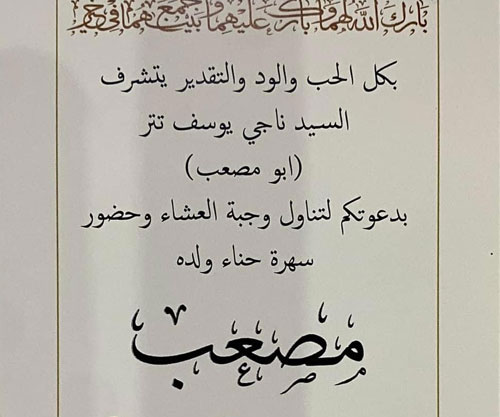 بارك الله لهما وبارك عليهما وجمع بينهما في خير
بكل الحب والود والتقدير يتشرف
السيد ناجي يوسف تتر
(ابو مصعب)
بدعوتكم لتناول وجبة العشاء وحضور
سهرة حناء ولده
مصعب